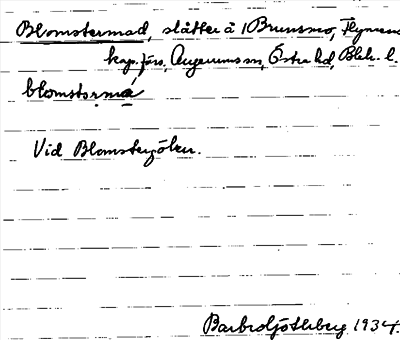 Blomstermad, slåtter å 1 Brunsmo, Flymens
kap. förs., Augerums sn, Östra hd, Blek. l.
blomstərma
Vid Blomstergölen.
Barbro Ljöthberg 1934.